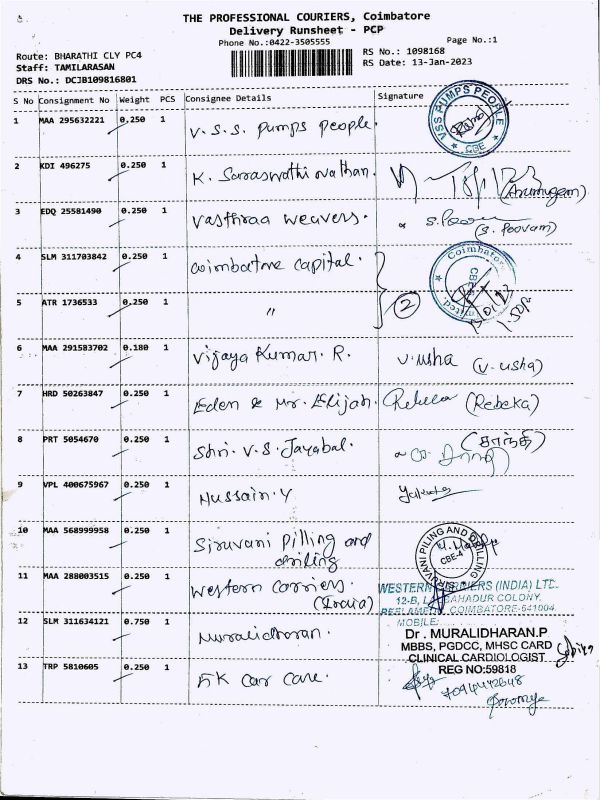 THE PROFESSIONAL COURIERS, Coimbatore
Delivery Runsheet - PCP
Phone No.:0422-3505555
Page No.:1
Route: BHARATHI CLY PC4
Staff: TAMILARASAN
DRS No.: DCJB109816801
RS No.: 1098168
RS Date: 13-Jan-2023
S No Consignment No Weight PCS Consignee Details Signature
1 MAA 295632221 0.250 1 V.S.S. Pumps People.
VSS PUMPS PEOPLE
CBE
2 KDI 496275 0.250 1 K. Saraswathi nathan. (Arumugam)
3 EDQ 25581490 0.250 1 Vasthraa weavers.
(S. Poovam)
4 SLM 311703842 0.250 1 Coimbatore capital.
Coimbatore
5 ATR 1736533 0.250 1 " 2
6 MAA 291583702 0.180 1 Vijaya Kumar. R. V.usha (V. usha)
7 HRD 50263847 0.250 1 Eden & Mr. Elijah. Rebeca (Rebeka)
8 PRT 5054670 0.250 1 Shri. V.S. Jayabal. (சாந்தி)
9 VPL 400675967 0.250 1 Hussain.Y
10 MAA 568999958 0.250 1 Siruvani Pilling and
drilling
SIRUVANI PILING AND DRILLING
CBE-4
11 MAA 288003515 0.250 1 Western carriers.
(India)
WESTERN CARRIERS (INDIA) LTD.
12-B, BAHADUR COLONY,
PEELAMEDU, COIMBATORE-641004.
MOBILE:
12 SLM 311634121 0.750 1 Muralidharan.
Dr . MURALIDHARAN.P
MBBS, PGDCC, MHSC CARD
CLINICAL CARDIOLOGIST
REG NO:59818
13 TRP 5810605 0.250 1 AK Car Care.